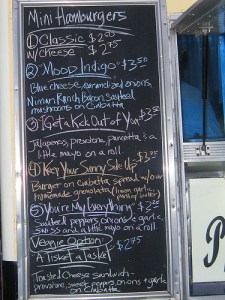 Mini Hamburgers
① Classic $2.50
w/cheese $2.75
② Mood Indigo $3.50
Blue cheese, caramelized onions,
Niman Ranch Bacon Sauteed
mushrooms on Ciabatta
③ I Get a Kick Out of You $3.50
Jalapenos, provolone, pancetta, is a
little mayo on a roll.
④ Keep Your Sunny Side Up $3.75
Burger on Ciabatta, spread w/our
homemade gremolata (lemon garlic,
parsley
⑤ You're My Everything $3.25
Sauteed peppers, onions & garlic,
swiss and a little mayo on a roll.
Veggie Option
A Tisket a Tasket $2.75
Toasted Cheese Sandwich-
provolone, sweet peppers, onions & garlic
on Ciabatta
P